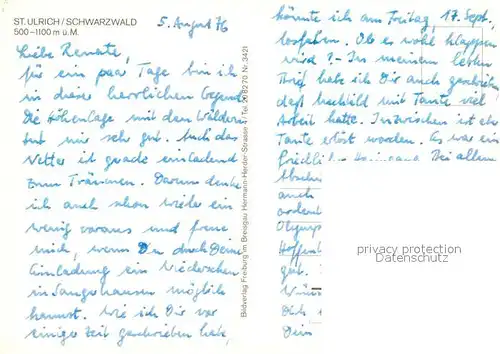 ST. ULRICH / SCHWARZWALD
500–1100 m ü. M.
5. August 76
Liebe Renate,
für ein paar Tage bin ich
in dieser herrlichen Gegend.
Die Höhenlage mit den Wäldern
tut mir sehr gut. Auch das
Wetter ist gerade einladend
zum Träumen. Darum denke
ich auch schon wieder ein
wenig voraus und freue
mich, wenn Du durch Deine
Einladung ein Wiedersehen
in Sangerhausen möglich
machst. Wie ich Dir vor
einiger Zeit geschrieben habe,
Bildverlag Freiburg im Breisgau Hermann-Herder-Strasse Tel. Nr. 3421
könnte ich am Freitag, 17. Sept.
losfahren. Ob es wohl klappen
wird? - In meinem letzten
Brief habe ich Dir auch geschrieben
daß mit Tante viel
Arbeit hatte. Inzwischen ist
Tante erlöst worden. Es war ein
Bei allem
auch
ordent
Olymp
Hoffen
gut.
Dich
Dein
privacy protection
Datenschutz